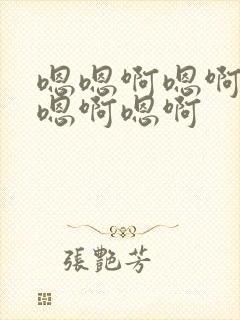 嗯嗯啊嗯啊
嗯啊嗯啊
張艷芳